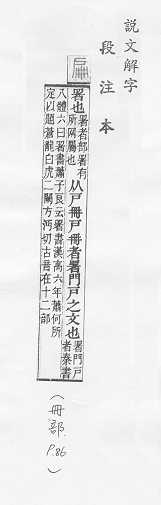 説文解字
段注本
扁
署也署者部署有所网屬也从戶冊戶冊者署門戶之文也署門戶者秦書
八體六曰署書蕭子良云署書漢高六年蕭何所
定以題蒼龍白虎二闕方沔切古音在十二部
(冊部. P.86)